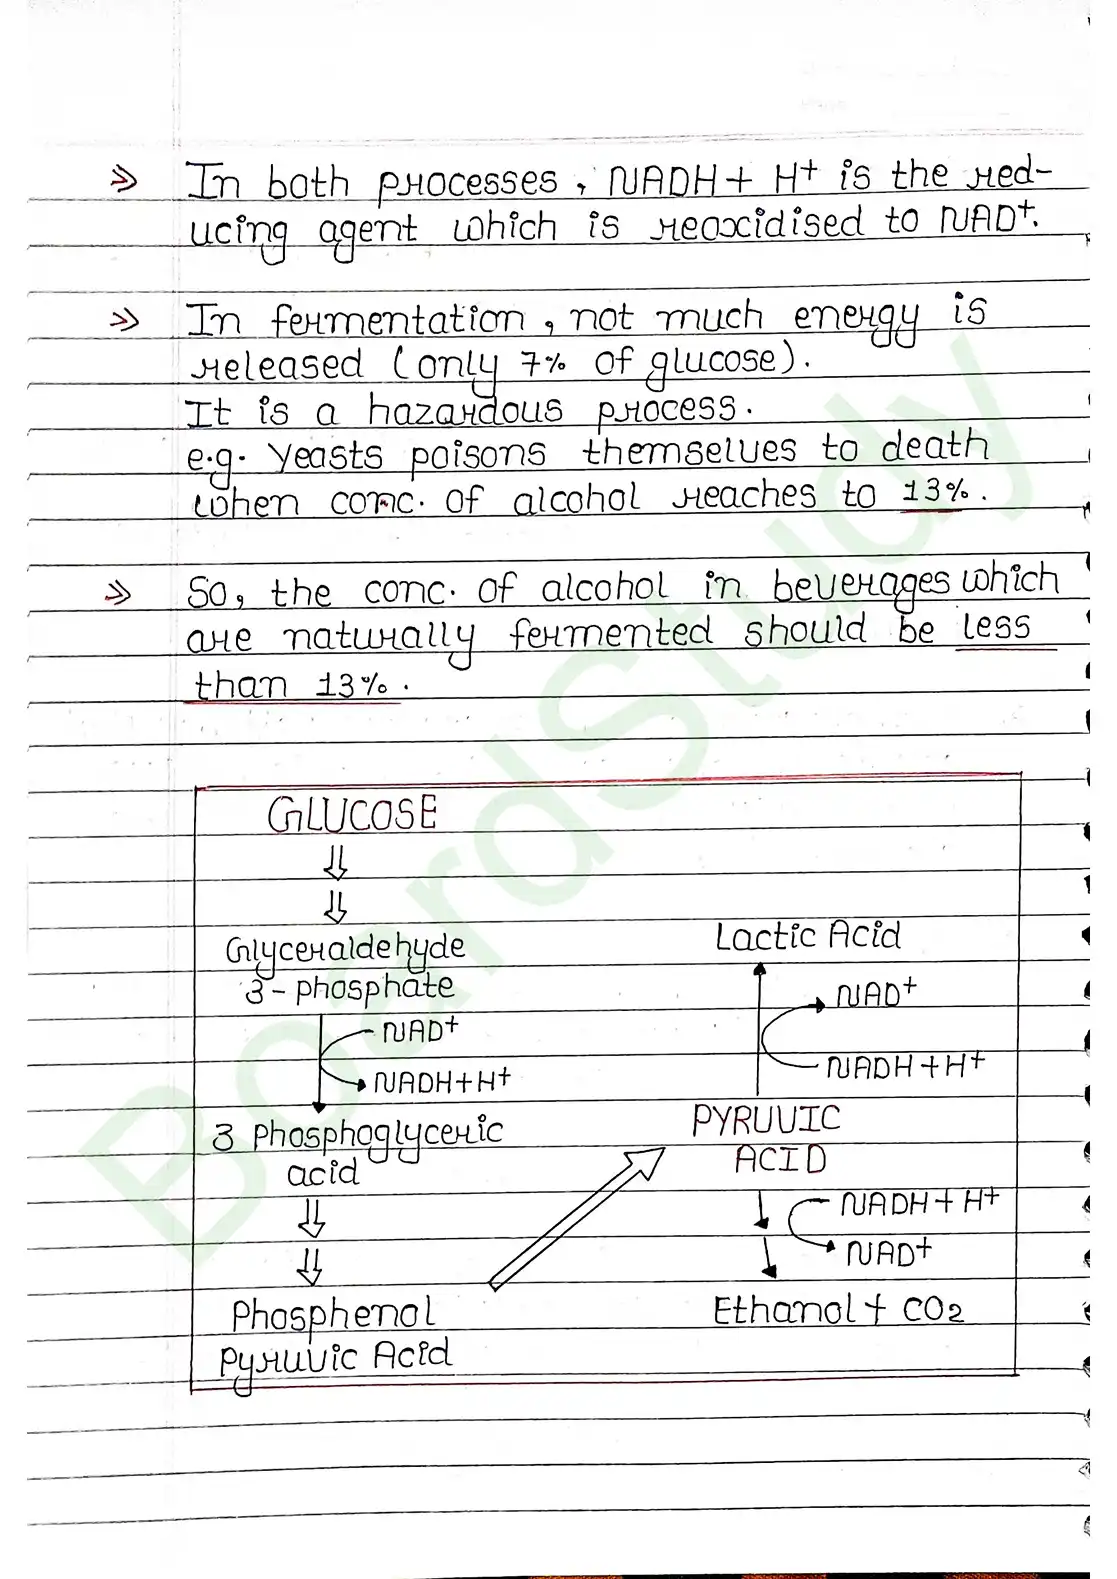 In both processes, NADH + H⁺ is the red-
ucing agent which is reoxidised to NAD⁺.
In fermentation, not much energy is
released (only 7% of glucose).
It is a hazardous process.
e.g. Yeasts poisons themselves to death
when conc. of alcohol reaches to 13%.
So, the conc. of alcohol in beverages which
are naturally fermented should be less
than 13%.
GLUCOSE
Glyceraldehyde
3-phosphate
NAD⁺
NADH+H⁺
3 Phosphoglyceric
acid
Phosphenol
Pyruvic Acid
Lactic Acid
NAD⁺
NADH + H⁺
PYRUVIC
ACID
NADH + H⁺
NAD⁺
Ethanol + CO₂
BoardStudy